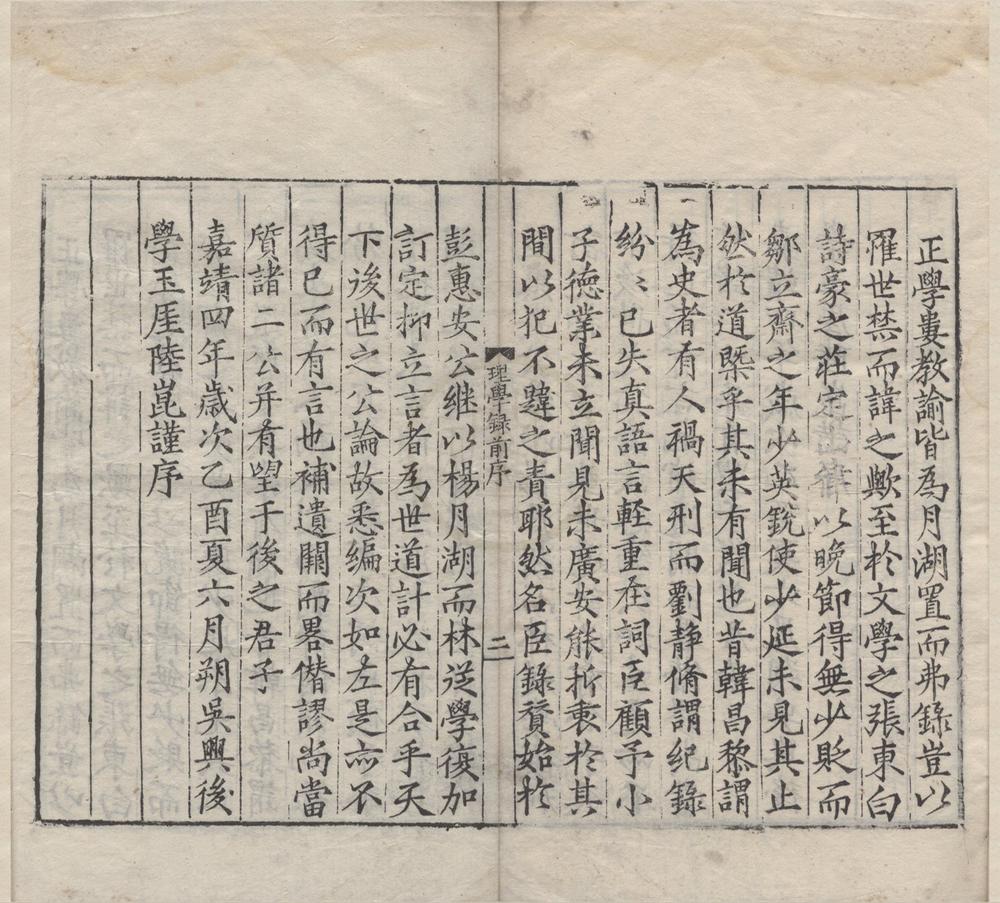 正學婁教諭皆為月湖置而弗錄豈以
罹世禁而諱之歟至於文學之張東白
詩豪之莊定山徒以晚節得無少貶而
鄒立齋之年少英銳使少延未見其止
然於道槩乎其未有聞也昔韓昌黎謂
為史者有人禍天刑而劉靜脩謂紀錄
紛〻已失真語言輕重在詞臣顧予小
子德業未立聞見未廣安能折衷於其
間以犯不韙之責耶然名臣錄贊始於
理學錄前序
二
彭惠安公繼以楊月湖而林從學復加
訂定抑立言者為世道計必有合乎天
下後世之公論故悉編次如左是亦不
得已而有言也補遺闕而畧僭謬尚當
質諸二公并有望于後之君子
嘉靖四年歲次乙酉夏六月朔吳興後
學玉厓陸崑謹序